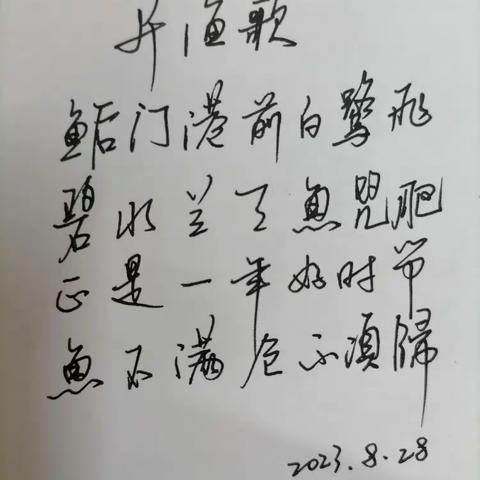 开渔歌
鲘门港前白鹭飛
碧水兰天鱼兒肥
正是一年好时节
鱼不满仓不須歸
2023.8.28